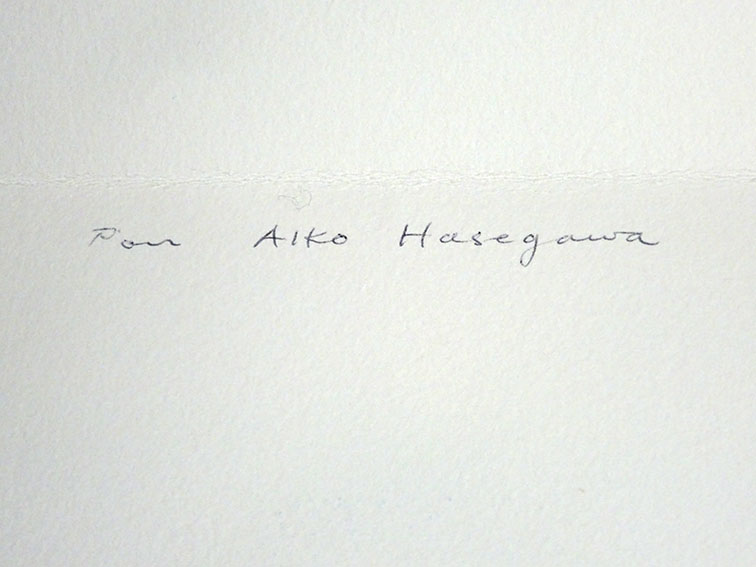 Pour Aiko Hasegawa